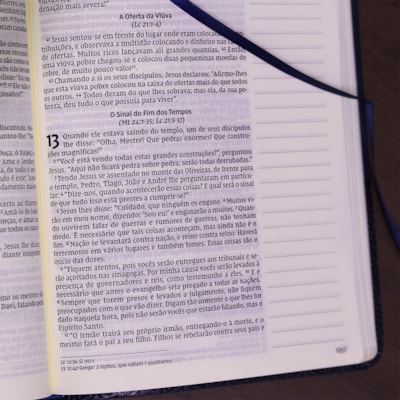 denação mais severa!"
A Oferta da Viúva
(Lc 21:1-4)
⁴¹Jesus sentou-se em frente do lugar onde eram coloca
tribuições, e observava a multidão colocando o dinheiro nas
de ofertas. Muitos ricos lançavam ali grandes quantias. ⁴²Então
uma viúva pobre chegou-se e colocou duas pequeninas moedas de
cobre, de muito pouco valor
⁴³Chamando a si os seus discípulos, Jesus declarou: "Afirmo-lhes
que esta viúva pobre colocou na caixa de ofertas mais do que todos
os outros. ⁴⁴Todos deram do que lhes sobrava; mas ela, da sua po-
breza, deu tudo o que possuía para viver".
O Sinal do Fim dos Tempos
(Mt 24:1-35; Lc 21:5-37)
13 Quando ele estava saindo do templo, um de seus discípulos
lhe disse: "Olha, Mestre! Que pedras enormes! Que constru-
ções magníficas!"
²"Você está vendo todas estas grandes construções?", perguntou
Jesus. "Aqui não ficará pedra sobre pedra; serão todas derrubadas."
³Tendo Jesus se assentado no monte das Oliveiras, de frente para
o templo, Pedro, Tiago, João e André lhe perguntaram em particu-
lar: ⁴"Dize-nos, quando acontecerão essas coisas? E qual será o sinal
de que tudo isso está prestes a cumprir-se?"
⁵Jesus lhes disse: "Cuidado, que ninguém os engane. ⁶Muitos vi-
rão em meu nome, dizendo: 'Sou eu!' e enganarão a muitos. ⁷Quan-
do ouvirem falar de guerras e rumores de guerras, não tenham
medo. É necessário que tais coisas aconteçam, mas ainda não é o
fim. ⁸Nação se levantará contra nação, e reino contra reino. Haverá
terremotos em vários lugares e também fomes. Essas coisas são o
início das dores.
⁹"Fiquem atentos, pois vocês serão entregues aos tribunais e se-
rão açoitados nas sinagogas. Por minha causa vocês serão levados à
presença de governadores e reis, como testemunho a eles. ¹⁰E é
necessário que antes o evangelho seja pregado a todas as nações.
¹¹Sempre que forem presos e levados a julgamento, não fiquem
preocupados com o que vão dizer. Digam tão somente o que lhes for
dado naquela hora, pois não serão vocês que estarão falando, mas o
Espírito Santo.
¹²"O irmão trairá seu próprio irmão, entregando-o à morte, e o
mesmo fará o pai a seu filho. Filhos se rebelarão contra seus pais e
12:42 Grego: 2 leptos, que valiam 1 quadrante.